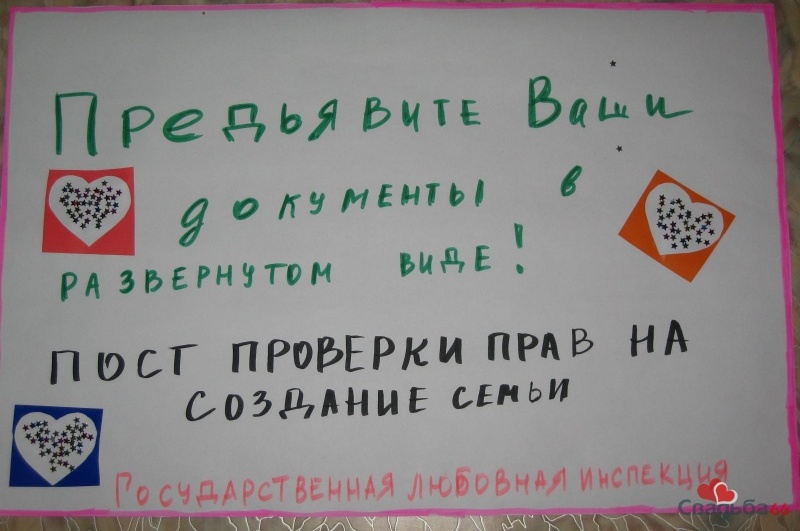 Предьявите Ваши
документы в
развернутом виде!
ПОСТ ПРОВЕРКИ ПРАВ НА
СОЗДАНИЕ СЕМЬИ
ГОСУДАРСТВЕННАЯ ЛЮБОВНАЯ ИНСПЕКЦИЯ
Свадьба66